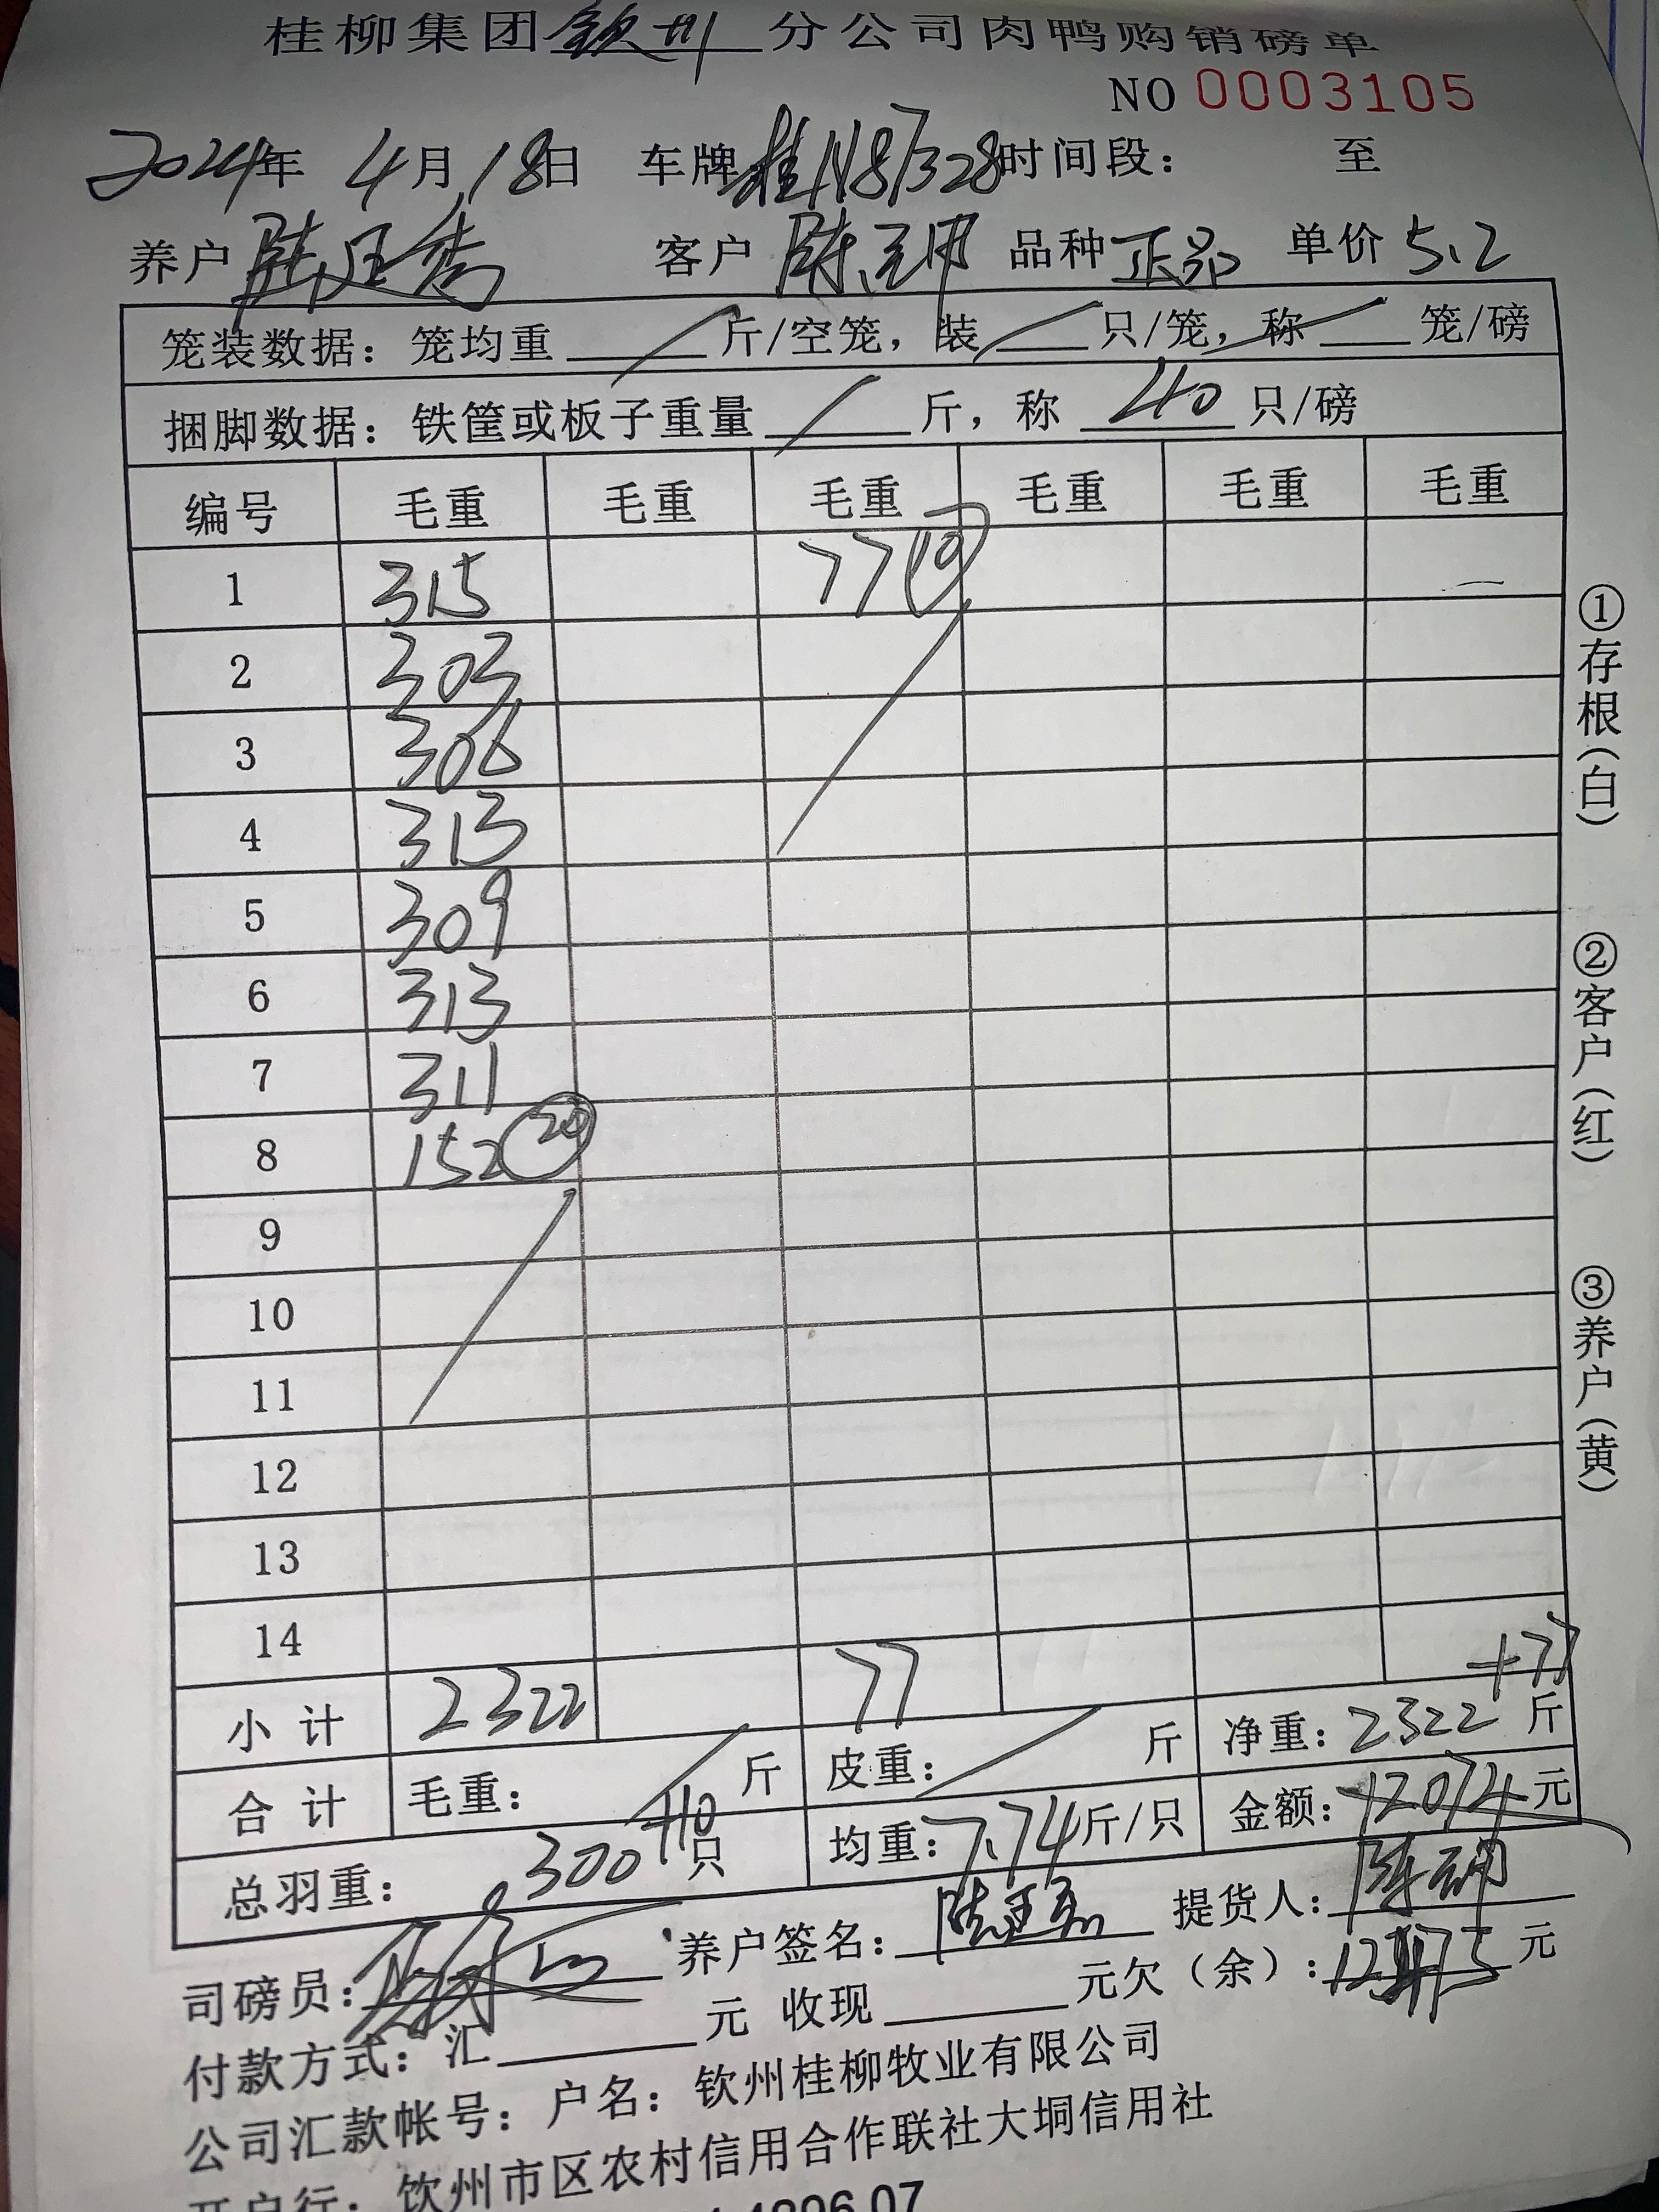 桂柳集团钦州分公司肉鸭购销磅单
NO 0003105
2024年 4月18日 车牌桂N87328时间段： 至
养户 客户 陈 品种 正品 单价 5.2
笼装数据：笼均重 斤/空笼，装 只/笼，称 笼/磅
捆脚数据：铁筐或板子重量 斤，称 40 只/磅
编号 毛重 毛重 毛重 毛重 毛重 毛重
1 315 77 (10)
2 303
3 306
4 313
5 309
6 313
7 311
8 152 (20)
9
10
11
12
13
14
小计 2322 77 +77
合计 毛重： 斤 皮重： 斤 净重：2322 斤
总羽重：300+10只 均重：7.74斤/只 金额：12074元
司磅员： 养户签名： 提货人：陈
付款方式：汇 元 收现 元欠（余）： 元
公司汇款帐号：户名：钦州桂柳牧业有限公司
开户行：钦州市区农村信用合作联社大垌信用社
①存根（白）
②客户（红）
③养户（黄）